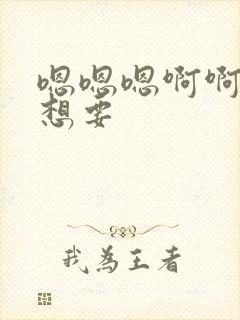 嗯嗯嗯啊啊
想要
我為王者